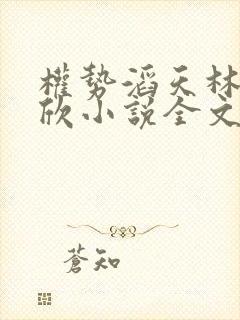 權勢滔天林
欣小說全文
蒼知